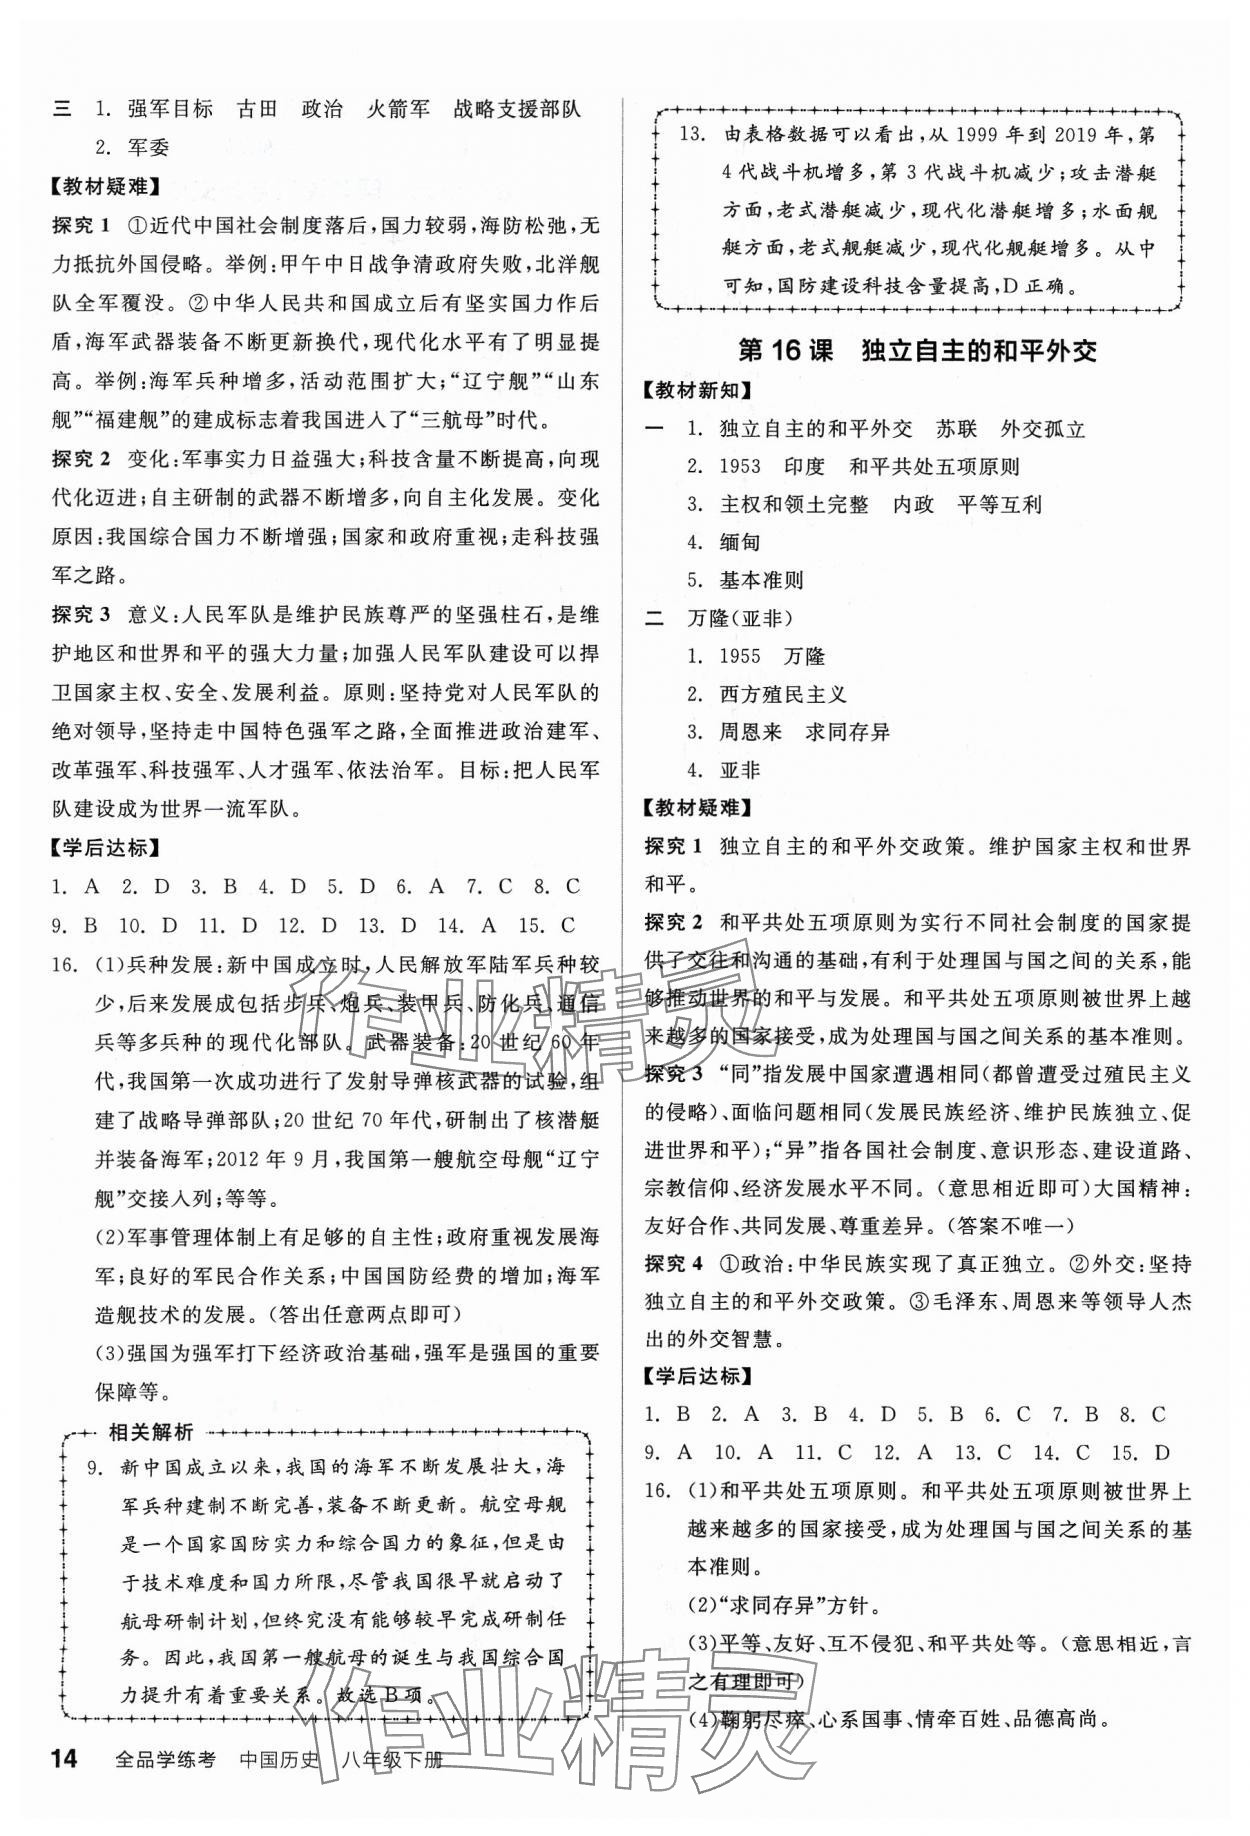 三 1. 强军目标 古田 政治 火箭军 战略支援部队
2. 军委
【教材疑难】
探究 1 ①近代中国社会制度落后,国力较弱,海防松弛,无
力抵抗外国侵略。举例:甲午中日战争清政府失败,北洋舰
队全军覆没。②中华人民共和国成立后有坚实国力作后
盾,海军武器装备不断更新换代,现代化水平有了明显提
高。举例:海军兵种增多,活动范围扩大;“辽宁舰”“山东
舰”“福建舰”的建成标志着我国进入了“三航母”时代。
探究 2 变化:军事实力日益强大;科技含量不断提高,向现
代化迈进;自主研制的武器不断增多,向自主化发展。变化
原因:我国综合国力不断增强;国家和政府重视;走科技强
军之路。
探究 3 意义:人民军队是维护民族尊严的坚强柱石,是维
护地区和世界和平的强大力量;加强人民军队建设可以捍
卫国家主权、安全、发展利益。原则:坚持党对人民军队的
绝对领导,坚持走中国特色强军之路,全面推进政治建军、
改革强军、科技强军、人才强军、依法治军。目标:把人民军
队建设成为世界一流军队。
【学后达标】
1. A 2. D 3. B 4. D 5. D 6. A 7. C 8. C
9. B 10. D 11. D 12. D 13. D 14. A 15. C
16. (1)兵种发展:新中国成立时,人民解放军陆军兵种较
少,后来发展成包括步兵、炮兵、装甲兵、防化兵、通信
兵等多兵种的现代化部队。武器装备:20 世纪 60 年
代,我国第一次成功进行了发射导弹核武器的试验,组
建了战略导弹部队;20 世纪 70 年代,研制出了核潜艇
并装备海军;2012 年 9 月,我国第一艘航空母舰“辽宁
舰”交接入列;等等。
(2)军事管理体制上有足够的自主性;政府重视发展海
军;良好的军民合作关系;中国国防经费的增加;海军
造舰技术的发展。(答出任意两点即可)
(3)强国为强军打下经济政治基础,强军是强国的重要
保障等。
相关解析
9. 新中国成立以来,我国的海军不断发展壮大,海
军兵种建制不断完善,装备不断更新。航空母舰
是一个国家国防实力和综合国力的象征,但是由
于技术难度和国力所限,尽管我国很早就启动了
航母研制计划,但终究没有能够较早完成研制任
务。因此,我国第一艘航母的诞生与我国综合国
力提升有着重要关系。故选 B 项。
14 全品学练考 中国历史 八年级下册
13. 由表格数据可以看出,从 1999 年到 2019 年,第
4 代战斗机增多,第 3 代战斗机减少;攻击潜艇
方面,老式潜艇减少,现代化潜艇增多;水面舰
艇方面,老式舰艇减少,现代化舰艇增多。从中
可知,国防建设科技含量提高,D 正确。
第 16 课 独立自主的和平外交
【教材新知】
一 1. 独立自主的和平外交 苏联 外交孤立
2. 1953 印度 和平共处五项原则
3. 主权和领土完整 内政 平等互利
4. 缅甸
5. 基本准则
二 万隆(亚非)
1. 1955 万隆
2. 西方殖民主义
3. 周恩来 求同存异
4. 亚非
【教材疑难】
探究 1 独立自主的和平外交政策。维护国家主权和世界
和平。
探究 2 和平共处五项原则为实行不同社会制度的国家提
供了交往和沟通的基础,有利于处理国与国之间的关系,能
够推动世界的和平与发展。和平共处五项原则被世界上越
来越多的国家接受,成为处理国与国之间关系的基本准则。
探究 3 “同”指发展中国家遭遇相同(都曾遭受过殖民主义
的侵略)、面临问题相同(发展民族经济、维护民族独立、促
进世界和平);“异”指各国社会制度、意识形态、建设道路、
宗教信仰、经济发展水平不同。(意思相近即可)大国精神:
友好合作、共同发展、尊重差异。(答案不唯一)
探究 4 ①政治:中华民族实现了真正独立。②外交:坚持
独立自主的和平外交政策。③毛泽东、周恩来等领导人杰
出的外交智慧。
【学后达标】
1. B 2. A 3. B 4. D 5. B 6. C 7. B 8. C
9. A 10. A 11. C 12. A 13. C 14. C 15. D
16. (1)和平共处五项原则。和平共处五项原则被世界上
越来越多的国家接受,成为处理国与国之间关系的基
本准则。
(2)“求同存异”方针。
(3)平等、友好、互不侵犯、和平共处等。(意思相近,言
之有理即可)
(4)鞠躬尽瘁、心系国事、情牵百姓、品德高尚。
作业精灵
作业精灵